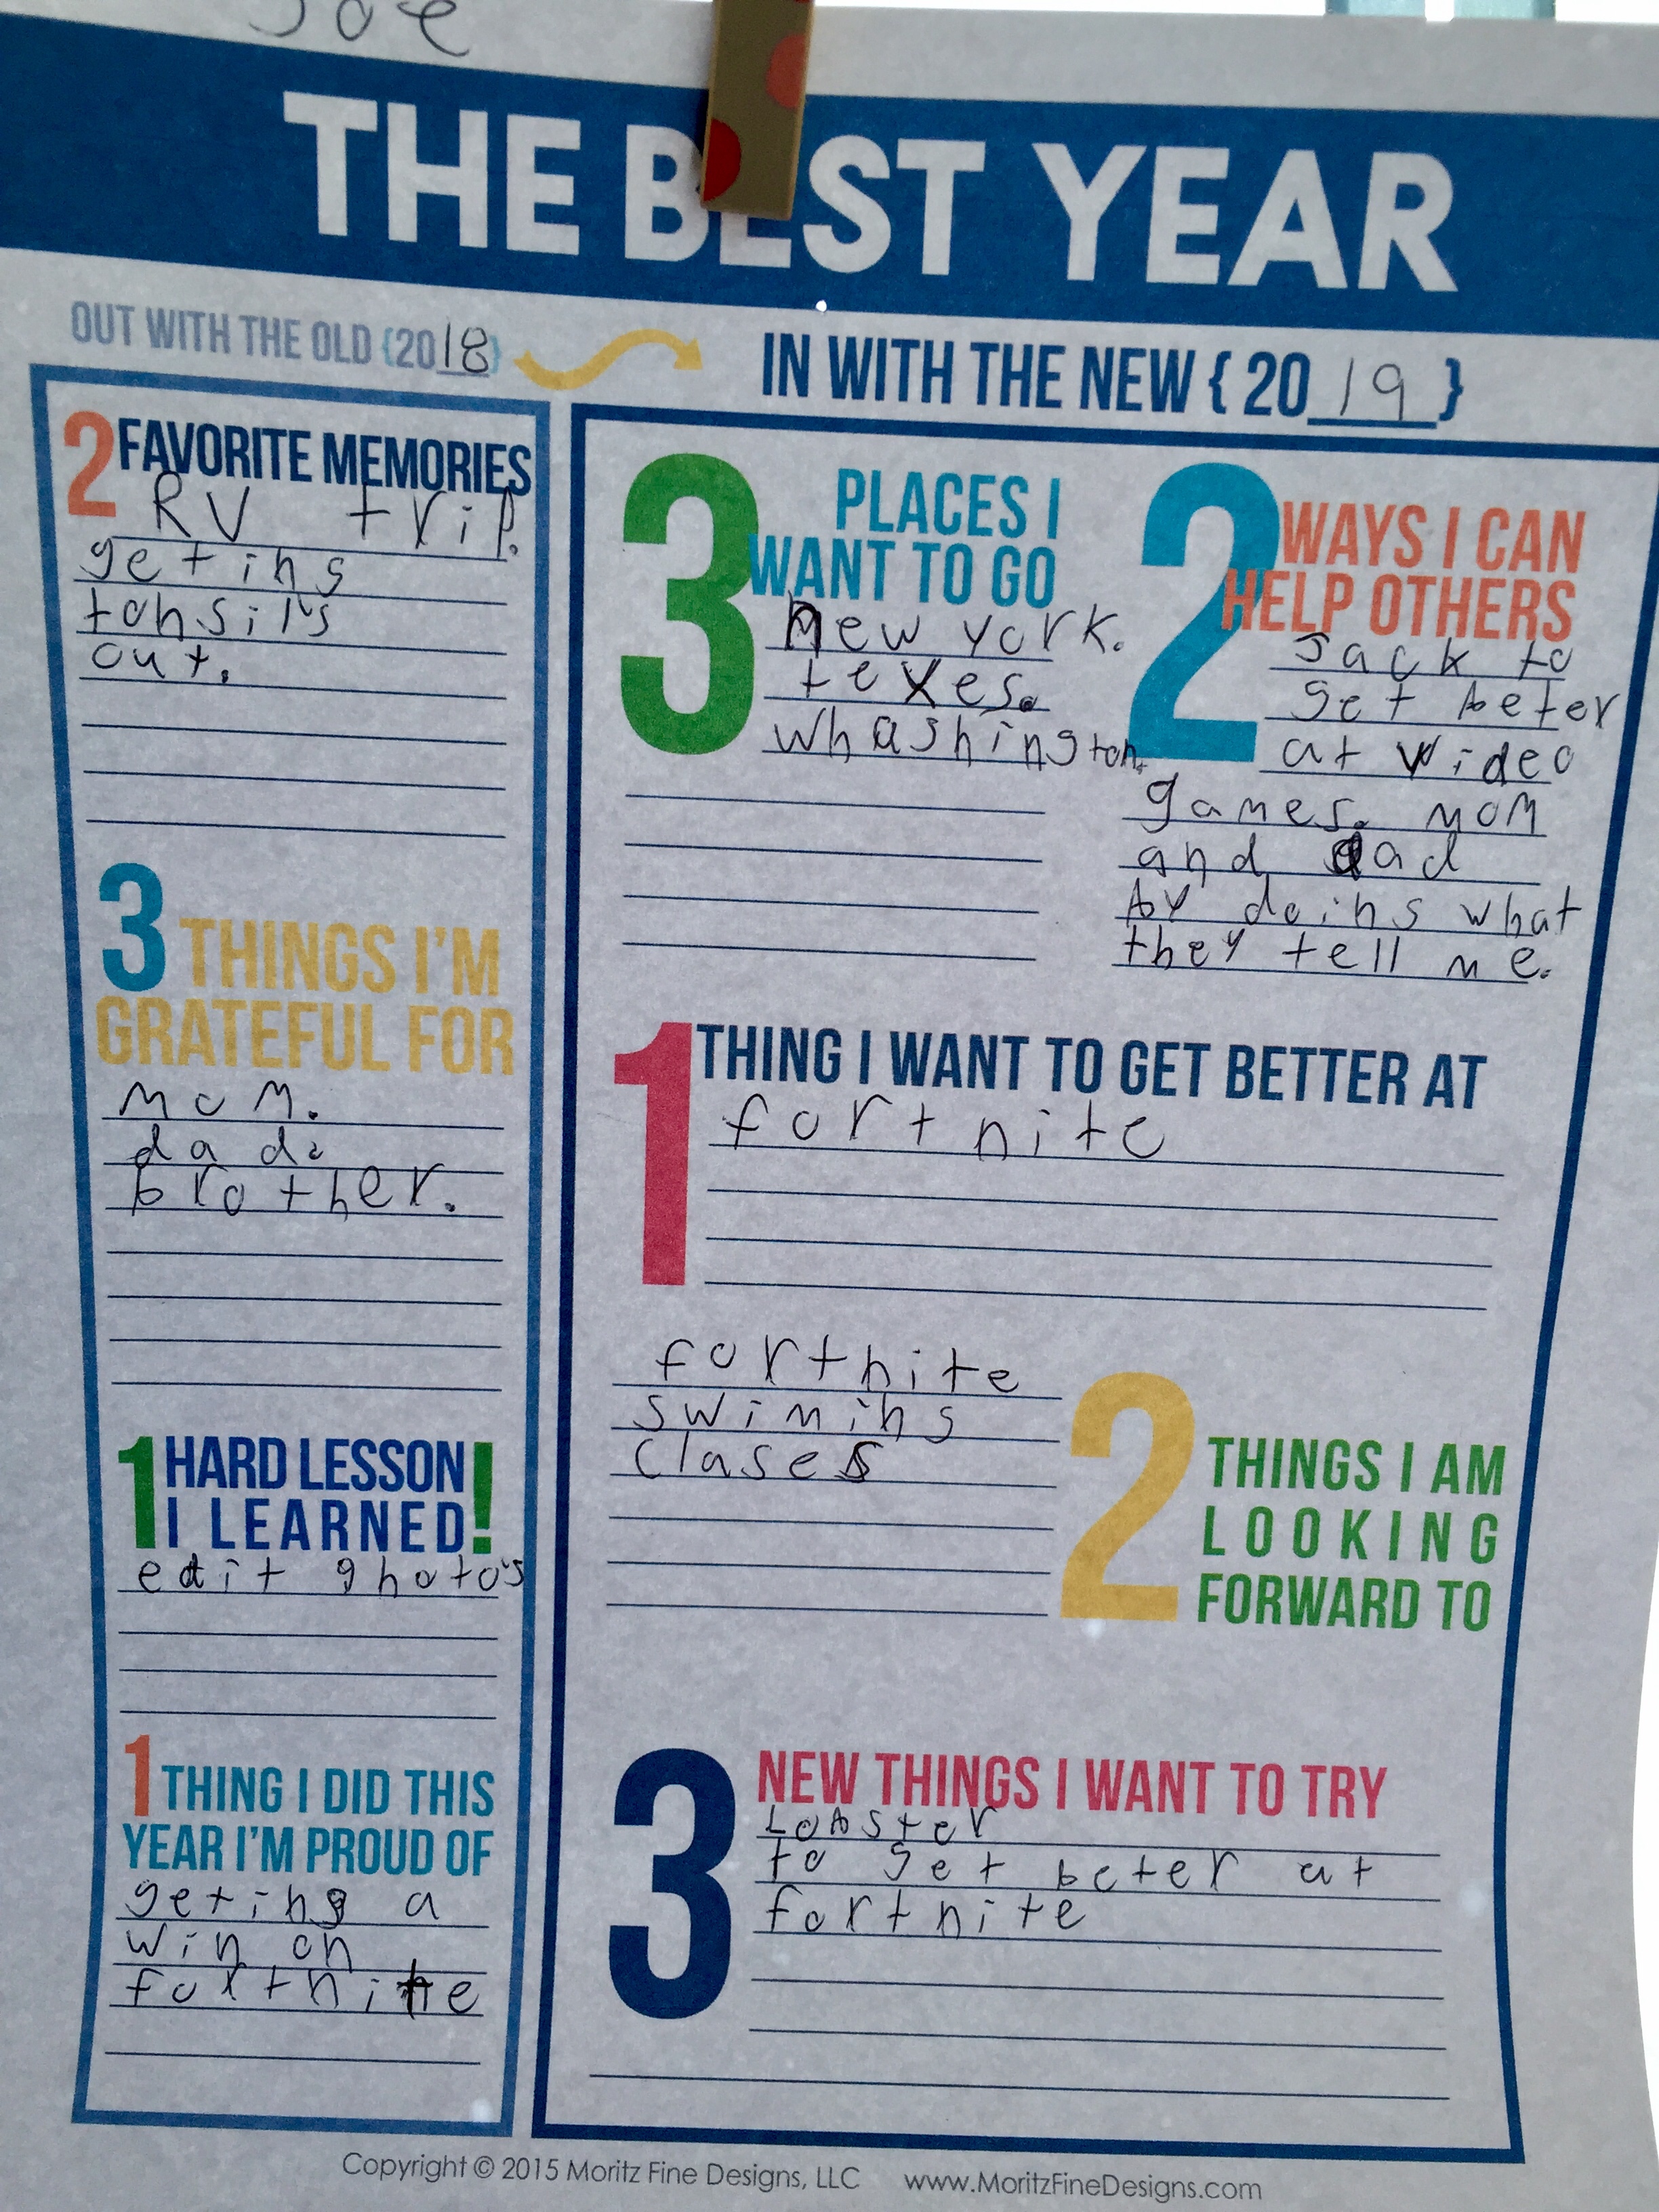 Joe
THE BEST YEAR
OUT WITH THE OLD {2018}
2 FAVORITE MEMORIES
RV trip.
geting
tonsil's
out.
3 THINGS I'M
GRATEFUL FOR
mom.
dad.
brother.
1 HARD LESSON
I LEARNED!
edit ghoto's
1 THING I DID THIS
YEAR I'M PROUD OF
geting a
win on
fortnite
IN WITH THE NEW {2019}
3 PLACES I
WANT TO GO
new york.
texes.
whashington.
2 WAYS I CAN
HELP OTHERS
Jack to
get beter
at video
games. mom
and dad
by doing what
they tell me.
1 THING I WANT TO GET BETTER AT
fortnite
fortnite
swiming
clases
2 THINGS I AM
LOOKING
FORWARD TO
3 NEW THINGS I WANT TO TRY
Lobster
to get beter at
fortnite
Copyright © 2015 Moritz Fine Designs, LLC www.MoritzFineDesigns.com